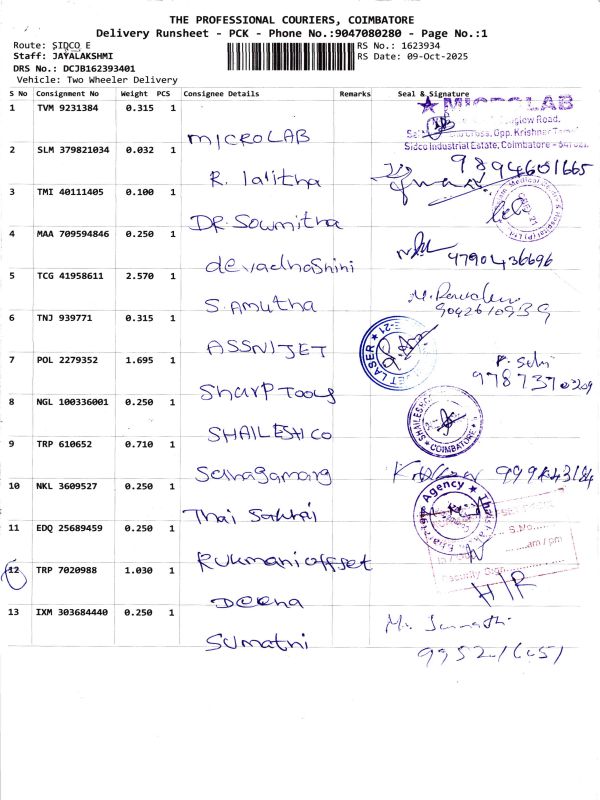 THE PROFESSIONAL COURIERS, COIMBATORE
Delivery Runsheet - PCK - Phone No.:9047080280 - Page No.:1
Route: SIDCO E
RS No.: 1623934
Staff: JAYALAKSHMI
RS Date: 09-Oct-2025
DRS No.: DCJB162393401
Vehicle: Two Wheeler Delivery
S No Consignment No Weight PCS Consignee Details Remarks Seal & Signature
1 TVM 9231384 0.315 1
MICROLAB
★ MICROLAB
Road.
Cross, Opp. Krishner
Sidco Industrial Estate, Coimbatore - 641 021
2 SLM 379821034 0.032 1
R. lalitha
9894601665
3 TMI 40111405 0.100 1
DR. Sowmitha
4 MAA 709594846 0.250 1
devadhashini
4790436696
5 TCG 41958611 2.570 1
S. Amutha
9042610939
6 TNJ 939771 0.315 1
ASSNIJET
JET LASER ★
7 POL 2279352 1.695 1
Sharp Tools
8 NGL 100336001 0.250 1
SHAILESH CO
SHAILESH
COIMBATORE
9 TRP 610652 0.710 1
10 NKL 3609527 0.250 1
Thai
Agency ★
11 EDQ 25689459 0.250 1
Rukmani offset
S.No.
am / pm
Security Sign
12 TRP 7020988 1.030 1
Deena
H/R
13 IXM 303684440 0.250 1
Sumathi